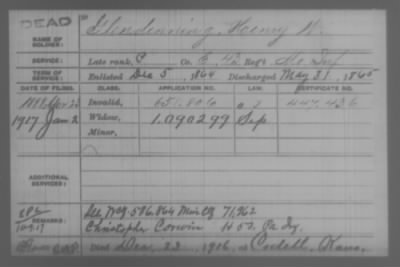 DEAD
NAME OF SOLDIER: Glendenning, Harvey W.
SERVICE: Late rank, P Co. E, 42 Reg't Mo. Inf
TERM OF SERVICE: Enlisted Dec 5, 1864 Discharged May 31, 1865
DATE OF FILING. CLASS. APPLICATION NO. LAW. CERTIFICATE NO.
Invalid, 651.806 447.436
1917 Jan 2 Widow, 1.090299 Sep
Minor,
ADDITIONAL SERVICES:
REMARKS: See 586.864 71,962
Christopher Corwin H 52 Pa Inf.
Died Dec 22 1916, at Codell, Kans.